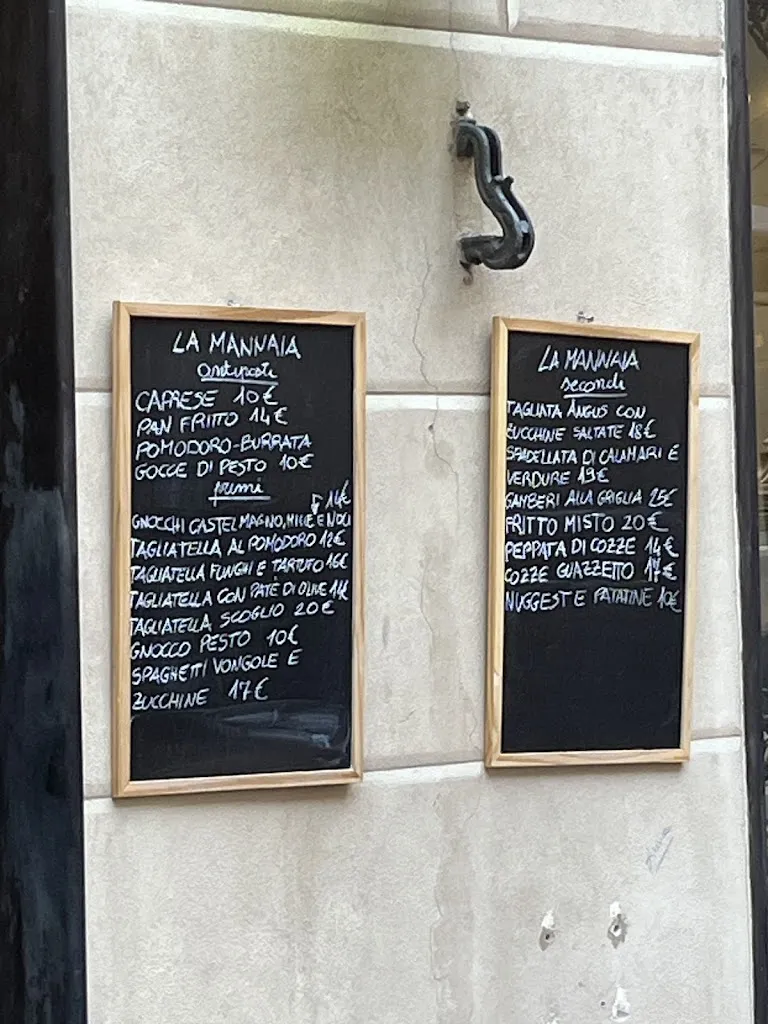 LA MANNAIA
antipasti
CAPRESE 10€
PAN FRITTO 14€
POMODORO-BURRATA
GOCCE DI PESTO 10€
primi
14€
GNOCCHI CASTELMAGNO, MIELE E NOCI
TAGLIATELLA AL POMODORO 12€
TAGLIATELLA FUNGHI E TARTUFO 16€
TAGLIATELLA CON PATÈ DI OLIVE 14€
TAGLIATELLA SCOGLIO 20€
GNOCCO PESTO 10€
SPAGHETTI VONGOLE E
ZUCCHINE 17€
LA MANNAIA
secondi
TAGLIATA ANGUS CON
ZUCCHINE SALTATE 18€
SPADELLATA DI CALAMARI E
VERDURE 19€
GAMBERI ALLA GRIGLIA 25€
FRITTO MISTO 20€
PEPPATA DI COZZE 14€
COZZE GUAZZETTO 17€
NUGGEST E PATATINE 10€